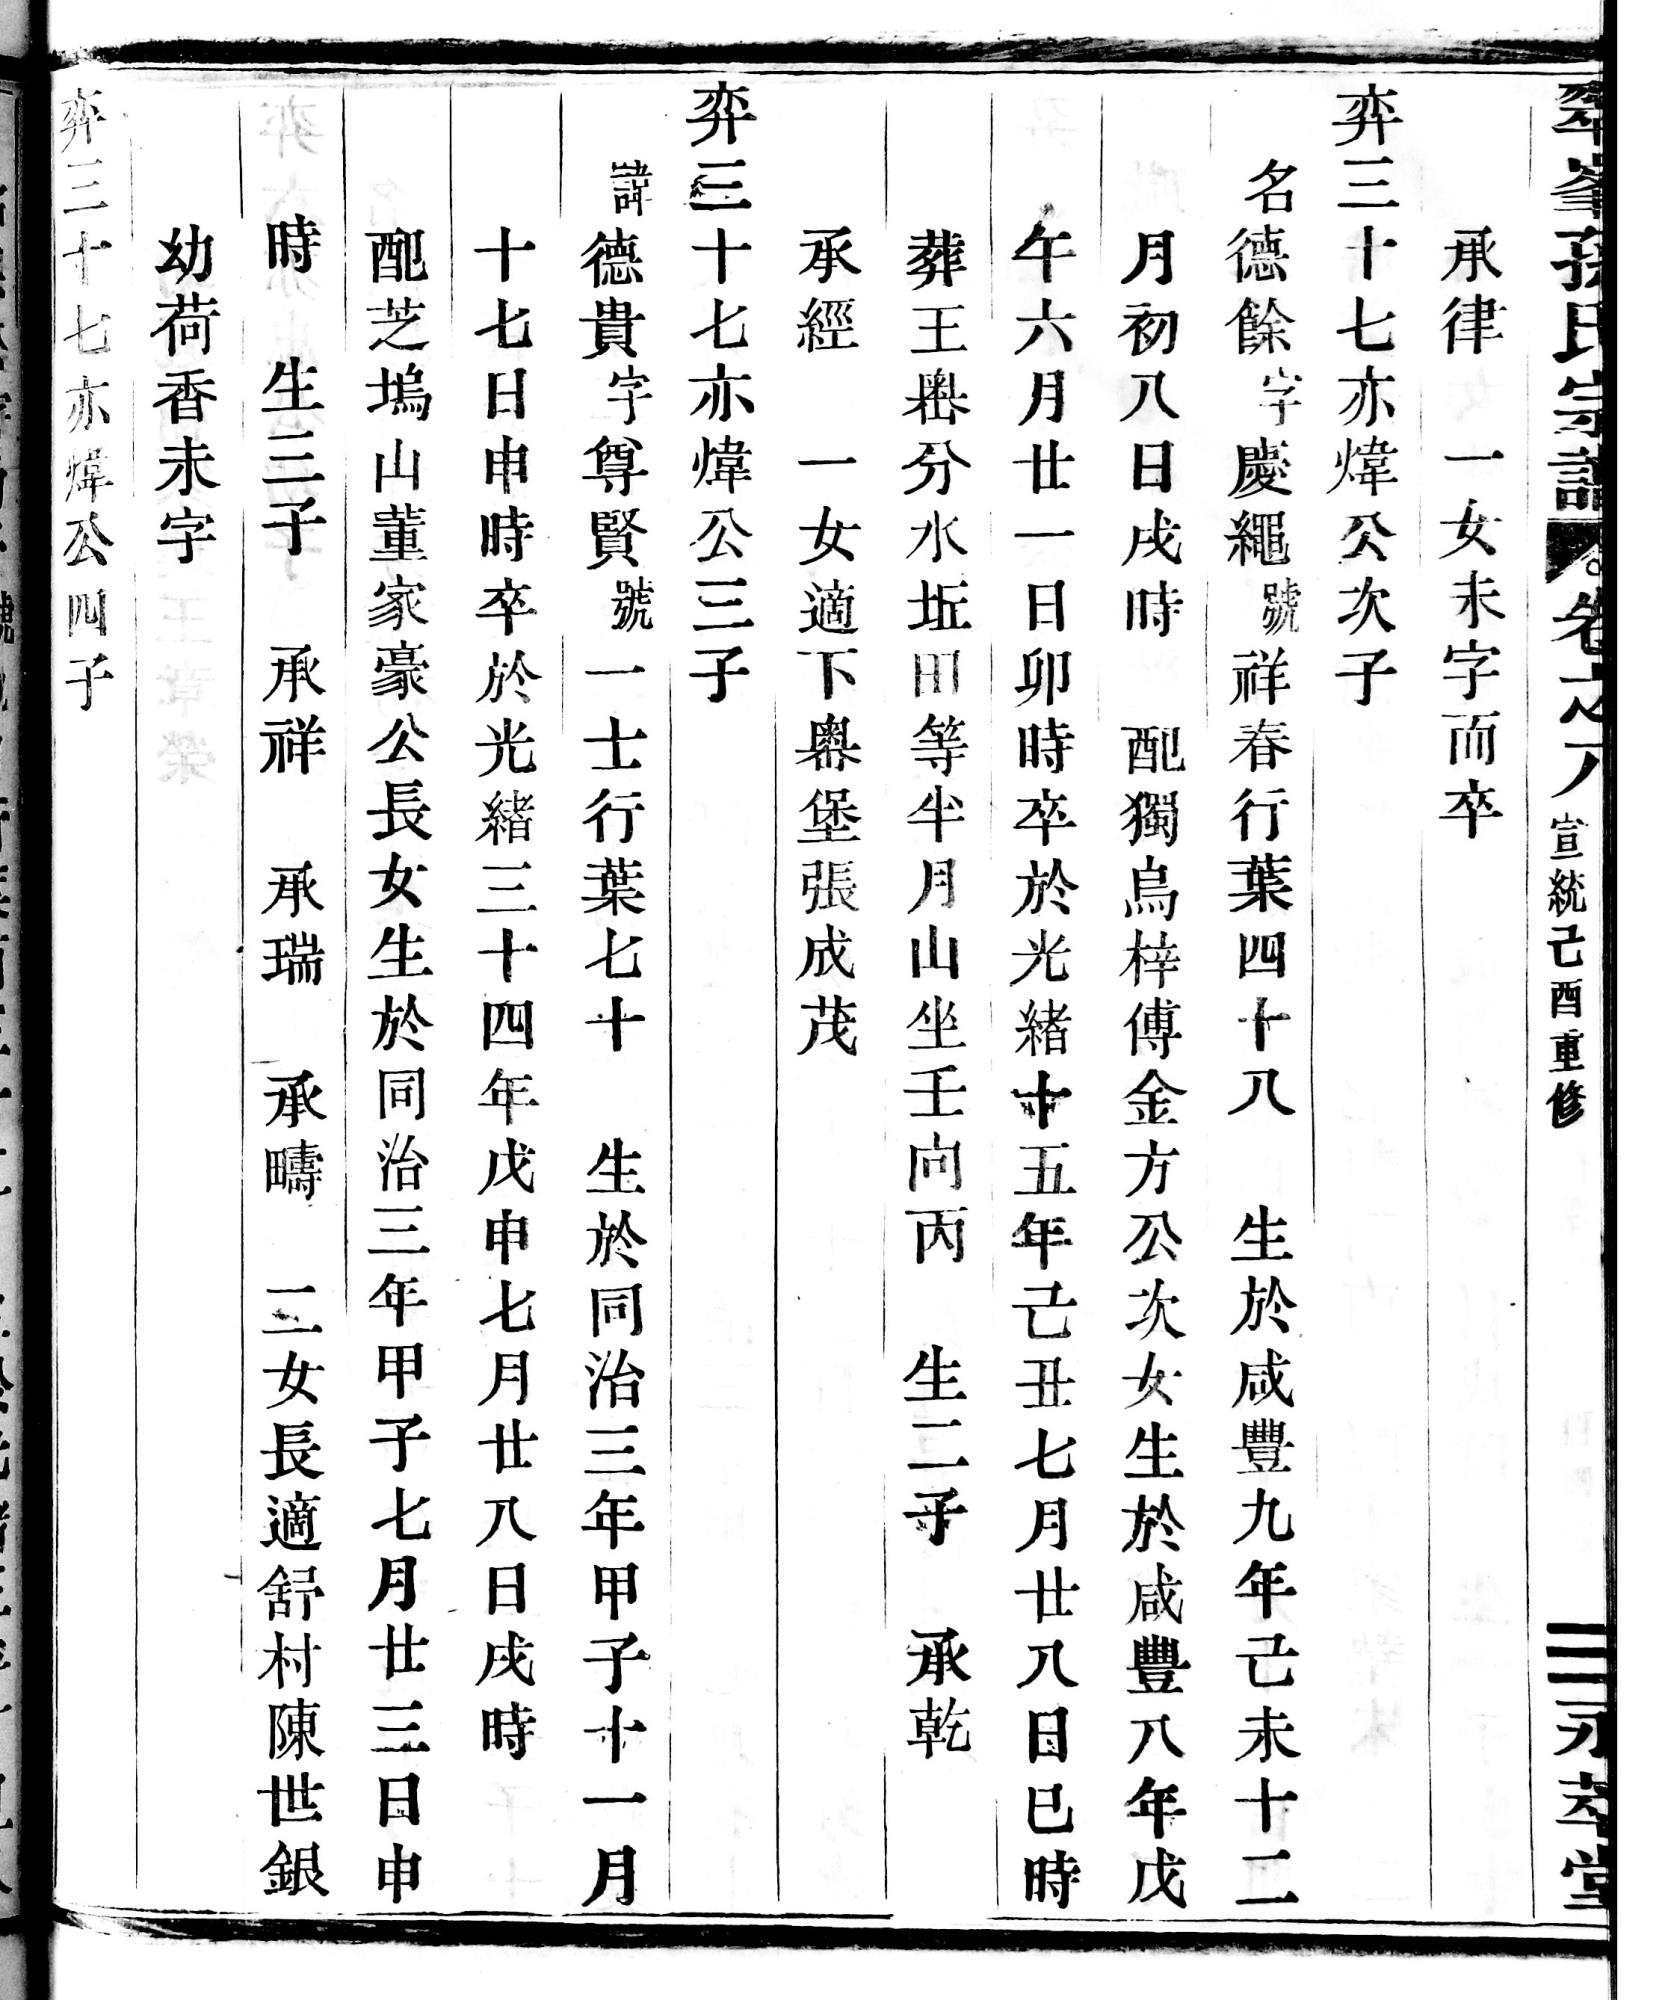 翠峯孫氏宗譜 卷之八 宣統己酉重修 三 永萃堂
承律 一女未字而卒
弈三十七亦煒公次子
名德餘字慶繩號祥春行葉四十八 生於咸豐九年己未十二
月初八日戌時 配獨烏梓傅金方公次女生於咸豐八年戊
午六月廿一日卯時卒於光緒十五年己丑七月廿八日巳時
葬王嶴分水坵田等半月山坐壬向丙 生二子 承乾
承經 一女適下嶴堡張成茂
弈三十七亦煒公三子
諱德貴字尊賢號一士行葉七十 生於同治三年甲子十一月
十七日申時卒於光緒三十四年戊申七月廿八日戌時
配芝塢山董家豪公長女生於同治三年甲子七月廿三日申
時 生三子 承祥 承瑞 承疇 二女長適舒村陳世銀
幼荷香未字
弈三十七亦煒公四子